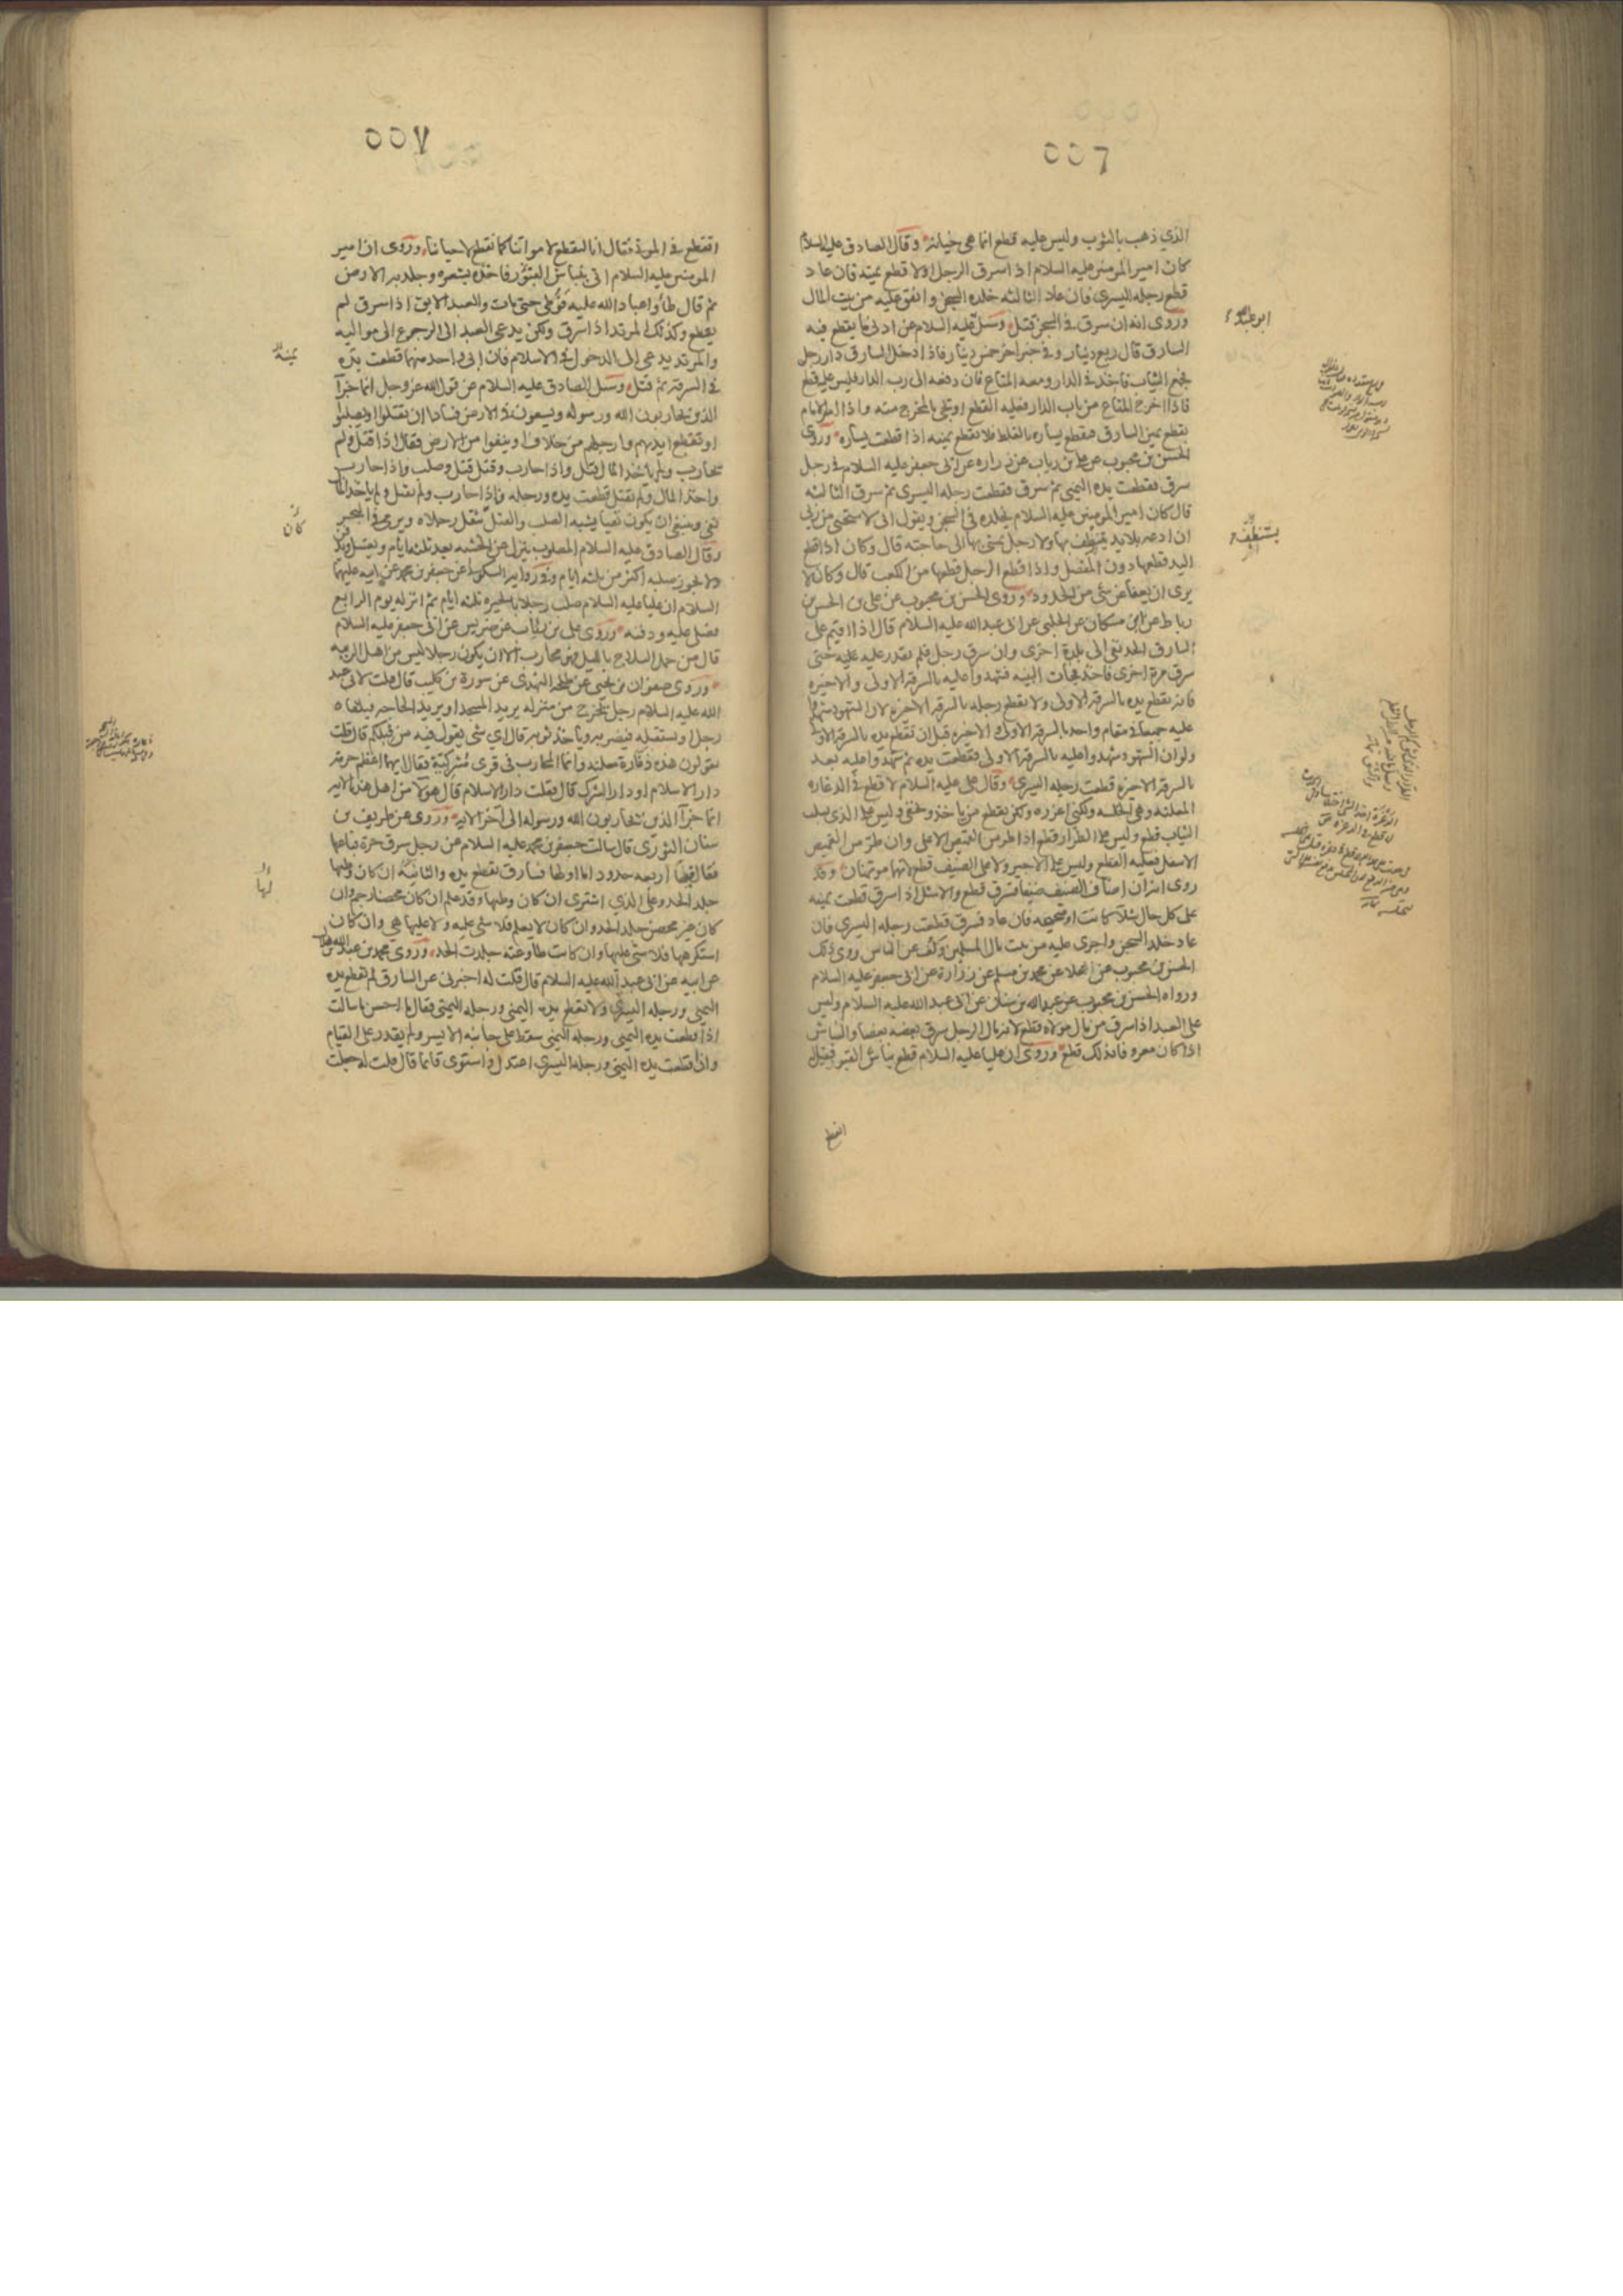 ٥٥٦
الذي ذهب بالثوب وليس عليه قطع انما هي خيانة وقال الصادق عليه السلام
كان امير المومنين عليه السلام اذا سرق الرجل اولا قطع يمينه فان عاد
قطع رجله اليسرى فان عاد الثالثة خلده السجن وانفق عليه من بيت المال
وروى انه ان سرق في السجن قتل وسئل عليه السلام عن ادنى ما يقطع فيه
السارق قال ربع دينار وفي خبر اخر خمس دينار فاذا دخل السارق دار رجل
فجمع الثياب فاخذ في الدار ومعه المتاع فقال دفعه الى رب الدار فليس عليه قطع
فاذا اخرج المتاع من باب الدار فعليه القطع او يجئ بالمخرج منه واذا امر الامام
بقطع يمين السارق فقطع يساره بالغلط فلا تقطع يمينه اذا قطعت يساره وروى
الحسن بن محبوب عن علي بن رئاب عن زراره عن ابي جعفر عليه السلام في رجل
سرق فقطعت يده اليمنى ثم سرق فقطعت رجله اليسرى ثم سرق الثالثة
قال كان امير المومنين عليه السلام يخلده في السجن ويقول انى لاستحيى من ربي
ان ادعه بلا يد يتنظف بها ولا رجل يمشى بها الى حاجته قال وكان اذا قطع
اليد قطعها دون المفصل واذا قطع الرجل قطعها من الكعب قال وكان لا
يرى ان يعفا عن شئ من الحدود وروى الحسن بن محبوب عن علي بن الحسن بن
رباط عن ابن مسكان عن الحلبي عن ابي عبد الله عليه السلام قال اذا اقيم على
السارق الحد نفى الى بلدة اخرى وان سرق رجل فلم يقدر عليه حتى
سرق مرة اخرى فاخذ فجأت البينة فشهدوا عليه بالسرقة الاولى والاخيرة
فانه يقطع يده بالسرقة الاولى ولا يقطع رجله بالسرقة الاخيرة لان الشهود شهدوا
عليه جميعا في مقام واحد بالسرقة الاولى والاخيرة قبل ان تقطع يده بالسرقة الاولى
ولو ان الشهود شهدوا عليه بالسرقة الاولى فقطعت يده ثم شهدوا عليه بعد
بالسرقة الاخيرة قطعت رجله اليسرى وقال علي عليه السلام لا قطع في الدغارة
المعلنة وهي الخلسة ولكني اعزره ولكن يقطع من ياخذ ويخفى وليس على الذي يسلب
الثياب قطع وليس على الطرار قطع اذا طر من القميص الاعلى وان طر من القميص
الاسفل فعليه القطع وليس على الاجير ولا على الضيف قطع لانهما موتمنان وقد
روى انه ان اضاف الضيف ضيفا فسرق قطع والاشل اذا سرق قطعت يمينه
على كل حال شلا كانت او صحيحه فان عاد فسرق قطعت رجله اليسرى فان
عاد خلد السجن واجرى عليه من بيت مال المسلمين وكف عن الناس روى ذلك
الحسن بن محبوب عن العلا عن محمد بن مسلم عن زرارة عن ابي جعفر عليه السلام
ورواه الحسن بن محبوب عن عبد الله بن سنان عن ابي عبد الله عليه السلام وليس
على العبد اذا سرق من مال مولاه قطع لانه مال الرجل سرق بعضه بعضا والنباش
اذا كان معروفا بذلك قطع وروى ان عليا عليه السلام قطع نباش القبر فقيل
ابو عبد الله
يستنظف
اتقطع
٥٥٧
اتقطع في الموتى فقال انا لنقطع لامواتنا كما نقطع لاحيائنا وروى ان امير
المومنين عليه السلام اتى بنباش القبور فاخذه بشعره وجلد به الارض
ثم قال طأوا عباد الله عليه فوطى حتى مات والعبد الابق اذا سرق لم
يقطع وكذلك المرتد اذا سرق ولكن يدعى العبد الى الرجوع الى مواليه
والمرتد يدعى الى الدخول في الاسلام فان ابى واحد منهما قطعت يده
في السرقة ثم قتل وسئل الصادق عليه السلام عن قول الله عز وجل انما جزآ
الذين يحاربون الله ورسوله ويسعون في الارض فسادا ان يقتلوا او يصلبوا
او تقطع ايديهم وارجلهم من خلاف او ينفوا من الارض فقال اذا قتل ولم
يحارب ولم ياخذ المال قتل واذا حارب وقتل قتل وصلب واذا حارب
واخذ المال ولم يقتل قطعت يده ورجله واذا حارب ولم يقتل ولم ياخذ المال
نفى وينبغى ان يكون نفيا يشبه الصلب والقتل تثقل رجلاه ويرمى في البحر
وقال الصادق عليه السلام المصلوب ينزل عن الخشبه بعد ثلثه ايام ويغسل ويدفن
ولا يجوز صلبه اكثر من ثلثه ايام وفي رواية السكوني عن جعفر بن محمد عن ابيه عليهما
السلام ان عليا عليه السلام صلب رجلا بالحيرة ثلثه ايام ثم انزله يوم الرابع
فصلى عليه ودفنه وروى علي بن رئاب عن ضريس عن ابي جعفر عليه السلام
قال من حمل السلاح بالليل فهو محارب الا ان يكون رجلا ليس من اهل الريبه
وروى صفوان بن يحيى عن طلحه النهدى عن سورة بن كليب قال قلت لابي عبد
الله عليه السلام رجل يخرج من منزله يريد المسجد او يريد الحاجه فيلقاه
رجل او يستقفيه فيضربه وياخذ ثوبه قال اي شي يقول فيه من قبلكم قال قلت
يقولون هذه دغارة معلنه وانما المحارب في قرى مشركيه فقال ايهما اعظم حرمة
دار الاسلام او دار الشرك قال فقلت دار الاسلام قال هولا من اهل هذه الايه
انما جزآ الذين يحاربون الله ورسوله الى آخر الايه وروى عن طريف بن
سنان الثورى قال سالت جعفر بن محمد عليه السلام عن رجل سرق حرة فباعها
فقال فيها اربعه حدود اما اولها فسارق تقطع يده والثانية ان كان وطيها
جلد الحد وعلى الذي اشترى ان كان وطيها وقد علم ان كان محصنا رجم وان
كان غير محصن جلد الحد وان كان لا يعلم فلا شي عليه ولا عليها هي وان كان
استكرهها فلا شي عليها وان كانت طاوعته جلدت الحد وروى محمد بن عبد الله بن هلال
عن ابيه عن ابي عبد الله عليه السلام قال قلت له اخبرني عن السارق لم تقطع يده
اليمنى ورجله اليسرى ولا تقطع يده اليمنى ورجله اليمنى فقال ما احسن ما سالت
اذا قطعت يده اليمنى ورجله اليمنى سقط على جانبه الايسر ولم يقدر على القيام
واذا قطعت يده اليمنى ورجله اليسرى اعتدل واستوى قائما قال قلت له جعلت
يمينه
كان
لها